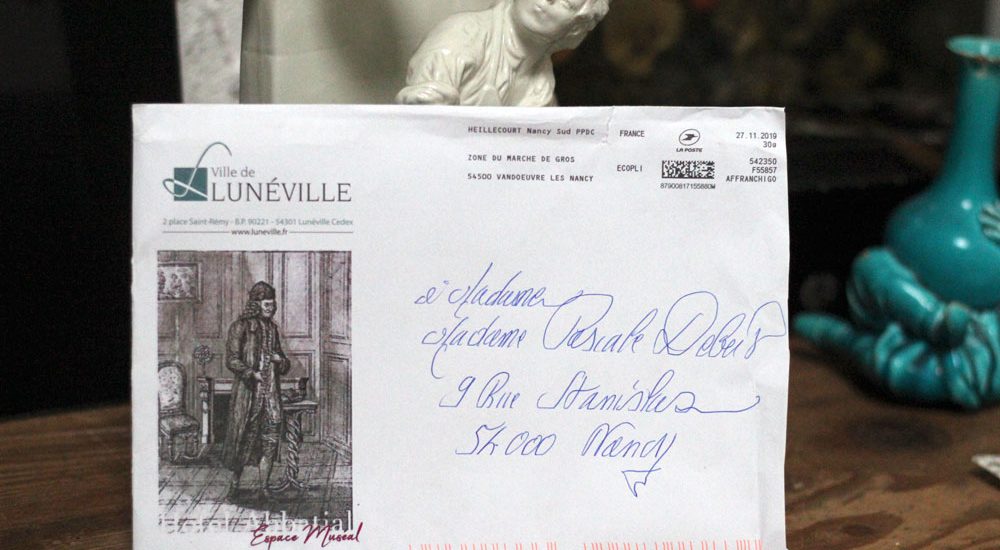 Ville de
LUNÉVILLE
2 place Saint-Rémy - B.P. 90221 - 54301 Lunéville Cedex
www.luneville.fr
Espace Muséal
HEILLECOURT Nancy Sud PPDC
ZONE DU MARCHE DE GROS
54500 VANDOEUVRE LES NANCY
FRANCE
ECOPLI
LA POSTE
87900817155880W
27.11.2019
30g
542350
F55857
AFFRANCHIGO
à Madame
Madame Pascale Debert
9 Rue Stanislas
54000 Nancy